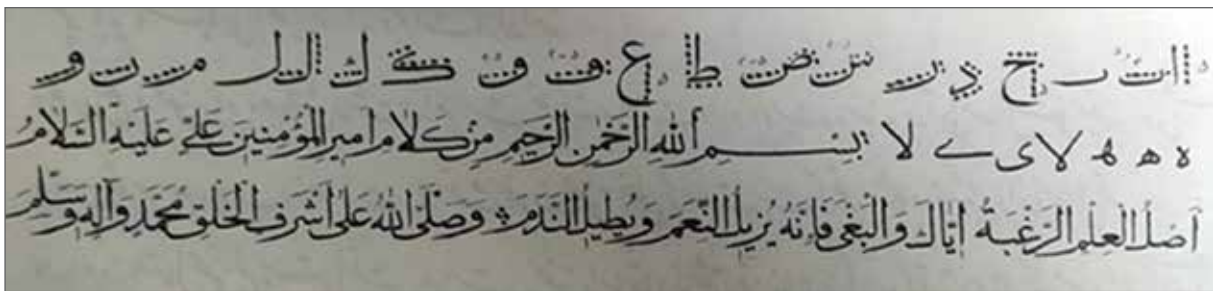 ا ب ر ح د س ص ط ع ف ق ك ل ا ل ل م ن و
ه ه ه لا ى ے لا بسم الله الرحمن الرحيم من كلام امير المؤمنين علي عليه السلام
اَصلُ العِلمِ الرَغبَةُ اِيّاكَ وَالبَغيَ فَاِنَّهُ يُزيلُ النِّعَمَ وَيُطيلُ النَّدَمَ وَصَلَّى اللهُ عَلى اَشرَفِ الخَلقِ مُحَمَّدٍ وَآلِهِ وَسَلَّمَ